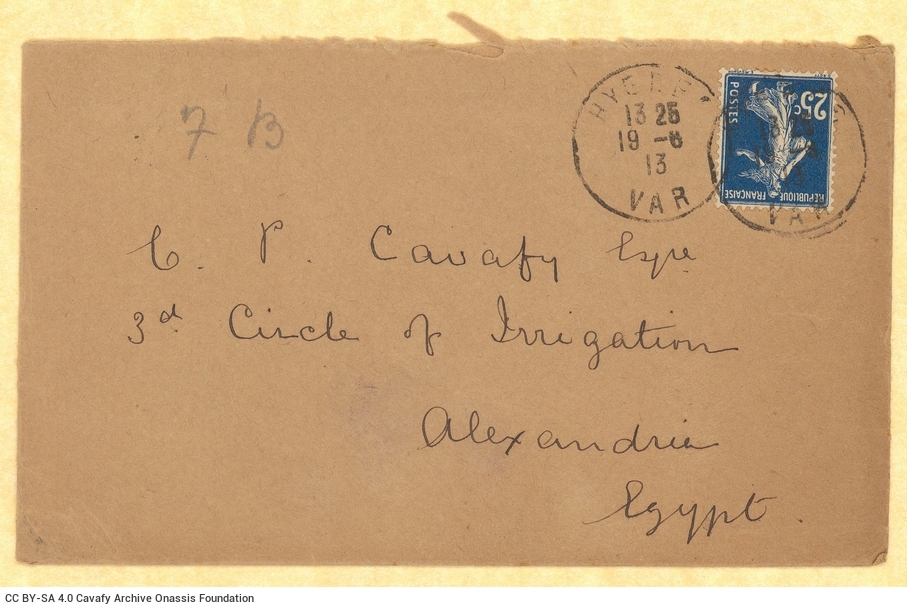 7 B
HYERES
13 25
19 -6
13
VAR
25c
POSTES
REPUBLIQUE FRANÇAISE
VAR
C. P. Cavafy Esqre
3d Circle of Irrigation
Alexandria
Egypt.
CC BY-SA 4.0 Cavafy Archive Onassis Foundation